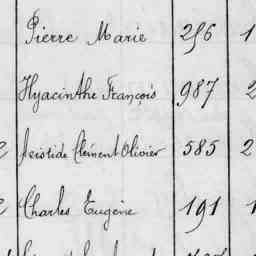 Pierre Marie 256 1
Hyacinthe François 987 2
Aristide Clément Olivier 585 2
Charles Eugène 191 1